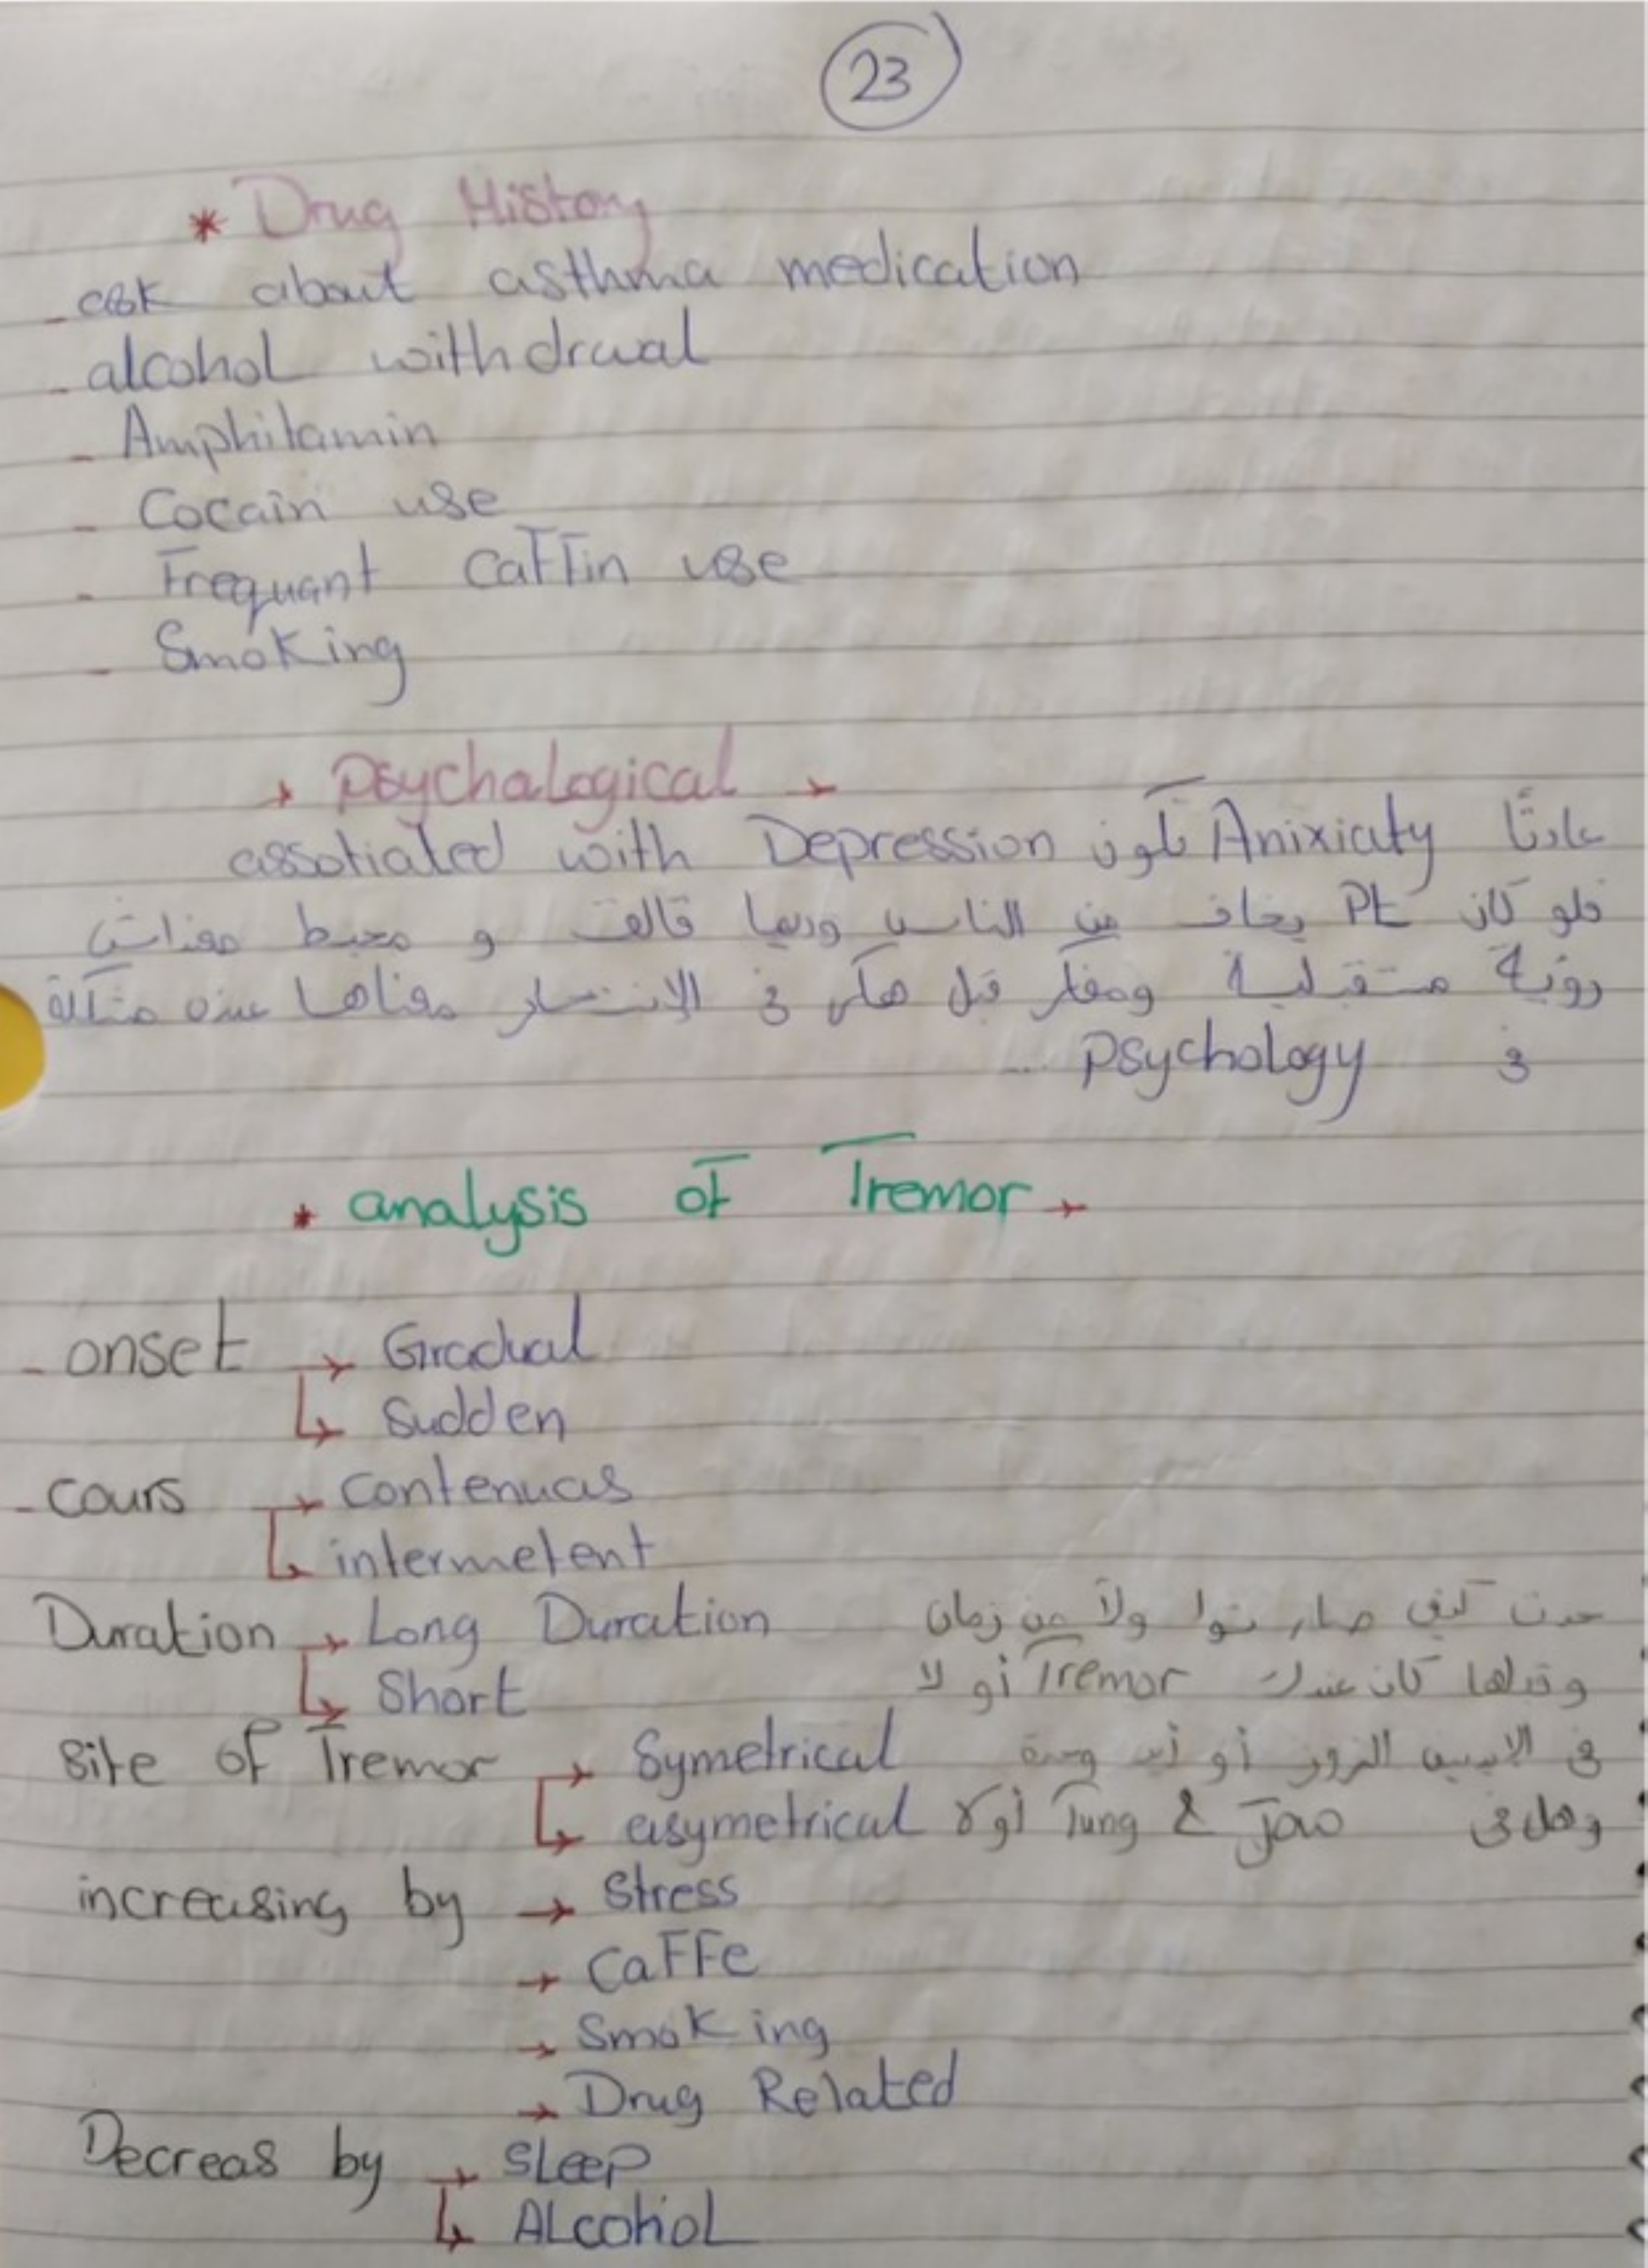 23
* Drug History
- ask about asthma medication
- alcohol withdrawal
- Amphitamin
- Cocain use
- Frequant Caffin use
- Smoking
* Psychalogical *
عادتًا Anixiaty تكون assotiated with Depression
فلو كان Pt يخاف من الناس وديما قالق و محبط معنداش
رؤية مستقبلية ومفكر قبل هكي في الإنتحار معناها عنده مشكلة
في Psychology ...
* analysis of Tremor *
- onset → Gradual
↳ Sudden
- cours → contenuas
↳ intermetent
Duration → Long Duration حدث كيف صار توا ولا من زمان
↳ Short وقبلها كان عندك Tremor أو لا
Site of Tremor → Symetrical في الايدين الزوز أو أيد وحدة
↳ asymetrical وهل في Jaw & Tung أو لا
increasing by → Stress
→ CaFFe
→ Smoking
→ Drug Related
Decreas by → Sleep
↳ ALcohol